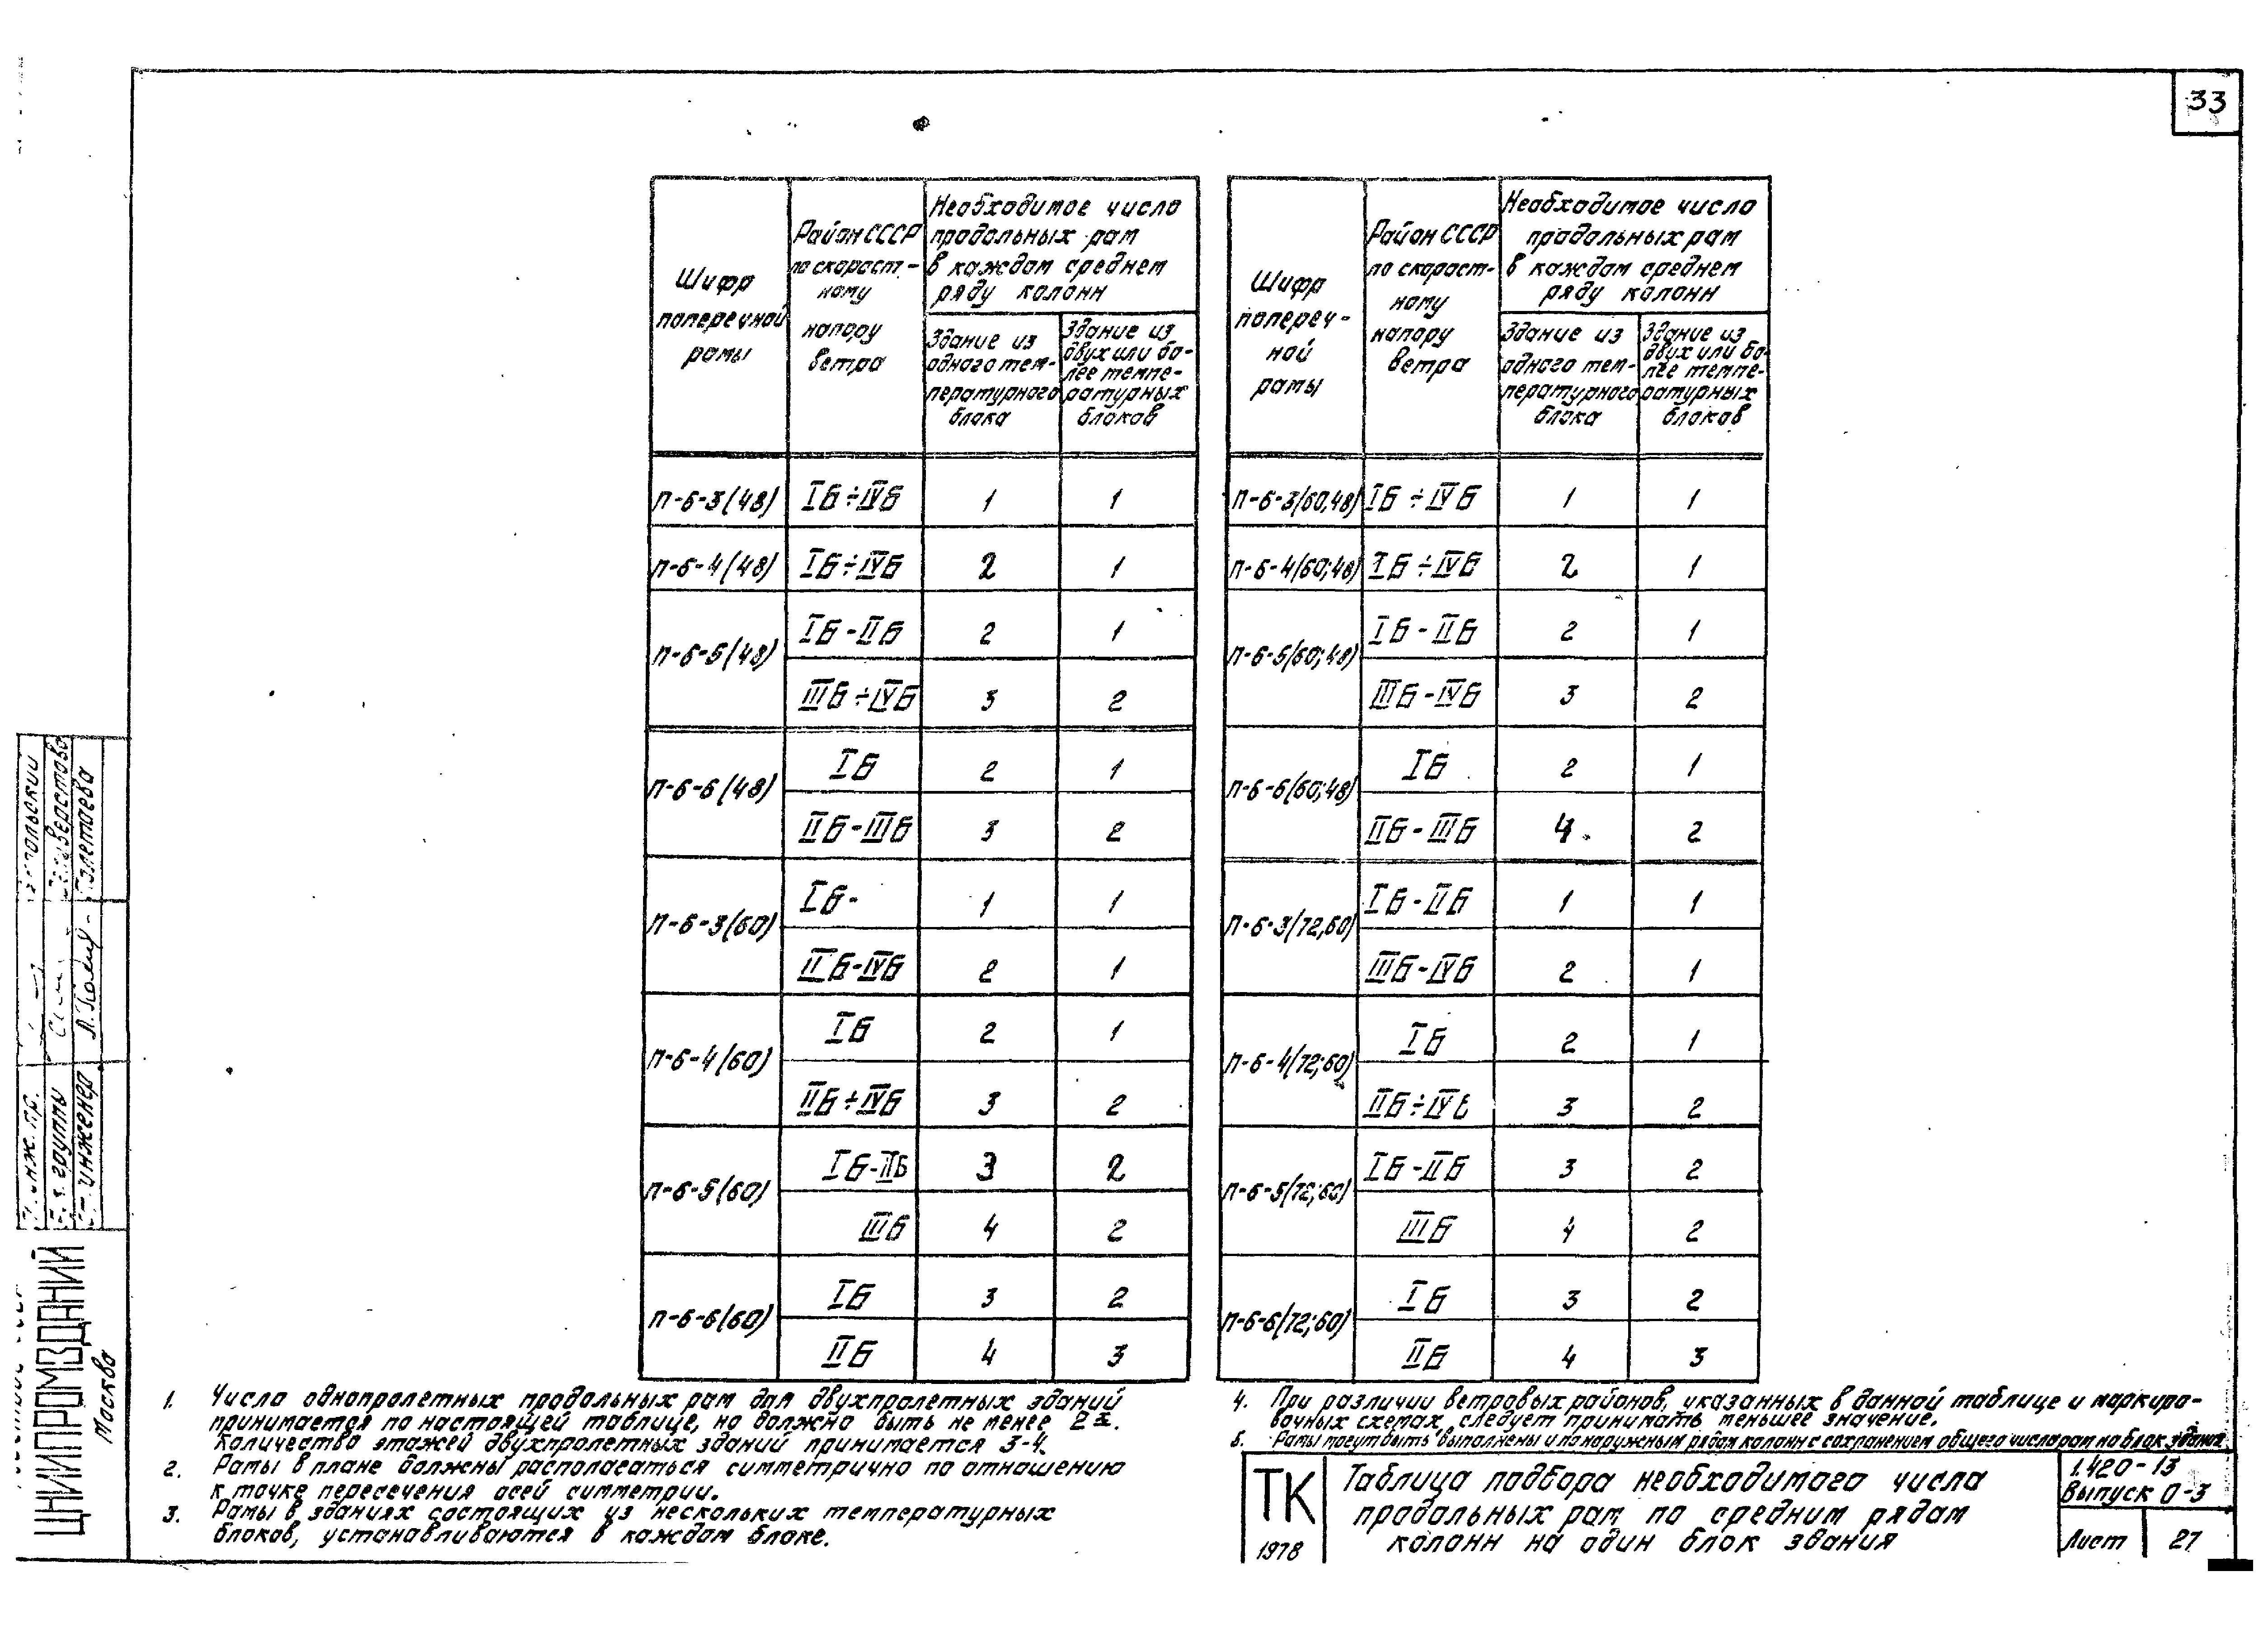 33
Шифр
поперечной
рамы
Район СССР
по скорост-
ному
напору
ветра
Необходимое число
продольных рам
в каждом среднем
ряду колонн
Здание из
одного тем-
пературного
блока
Здание из
двух или бо-
лее темпе-
ратурных
блоков
П-6-3(48) IБ÷IVБ 1 1
П-6-4(48) IБ÷IVБ 2 1
П-6-5(48)
IБ-IIБ 2 1
IIIБ÷IVБ 3 2
П-6-6(48)
IБ 2 1
IIБ-IIIБ 3 2
П-6-3(60)
IБ- 1 1
IIБ-IVБ 2 1
П-6-4(60)
IБ 2 1
IIБ÷IVБ 3 2
П-6-5(60)
IБ-IIБ 3 2
IIIБ 4 2
П-6-6(60)
IБ 3 2
IIБ 4 3
Шифр
попереч-
ной
рамы
Район СССР
по скорост-
ному
напору
ветра
Необходимое число
продольных рам
в каждом среднем
ряду колонн
Здание из
одного тем-
пературного
блока
Здание из
двух или бо-
лее темпе-
ратурных
блоков
П-6-3(60;48) IБ÷IVБ 1 1
П-6-4(60;48) IБ÷IVБ 2 1
П-6-5(60;48)
IБ-IIБ 2 1
IIIБ-IVБ 3 2
П-6-6(60;48)
IБ 2 1
IIБ-IIIБ 4 2
П-6-3(72;60)
IБ-IIБ 1 1
IIIБ-IVБ 2 1
П-6-4(72;60)
IБ 2 1
IIБ÷IVБ 3 2
П-6-5(72;60)
IБ-IIБ 3 2
IIIБ 4 2
П-6-6(72;60)
IБ 3 2
IIБ 4 3
1. Число однопролетных продольных рам для двухпролетных зданий
принимается по настоящей таблице, но должно быть не менее 2х.
Количество этажей двухпролетных зданий принимается 3-4.
2. Рамы в плане должны располагаться симметрично по отношению
к точке пересечения осей симметрии.
3. Рамы в зданиях состоящих из нескольких температурных
блоков, устанавливаются в каждом блоке.
4. При различии ветровых районов, указанных в данной таблице и маркиро-
вочных схемах, следует принимать меньшее значение.
5. Рамы могут быть выполнены и по наружным рядам колонн с сохранением общего числа рам на блок здания
ТК
1978
Таблица подбора необходимого числа
продольных рам по средним рядам
колонн на один блок здания
1.420-13
Выпуск 0-3
Лист 27
ЦНИИПРОМЗДАНИЙ
Москва
группы
инженер